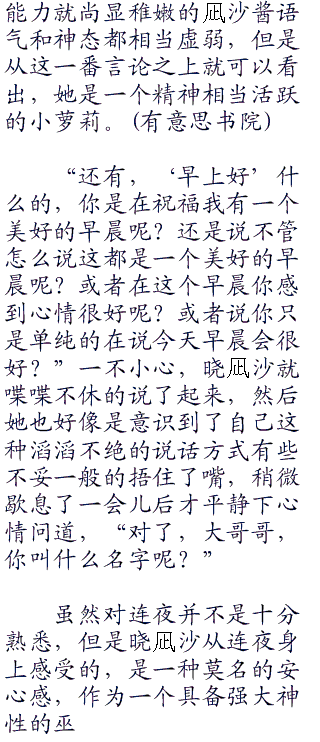 能力就尚显稚嫩的凪沙酱语
气和神态都相当虚弱，但是
从这一番言论之上就可以看
出，她是一个精神相当活跃
的小萝莉。(有意思书院)
“还有，‘早上好’什
么的，你是在祝福我有一个
美好的早晨呢？还是说不管
怎么说这都是一个美好的早
晨呢？或者在这个早晨你感
到心情很好呢？或者说你只
是单纯的在说今天早晨会很
好？”一不小心，晓凪沙就
喋喋不休的说了起来，然后
她也好像是意识到了自己这
种滔滔不绝的说话方式有些
不妥一般的捂住了嘴，稍微
歇息了一会儿后才平静下心
情问道，“对了，大哥哥，
你叫什么名字呢？”
虽然对连夜并不是十分
熟悉，但是晓凪沙从连夜身
上感受的，是一种莫名的安
心感，作为一个具备强大神
性的巫